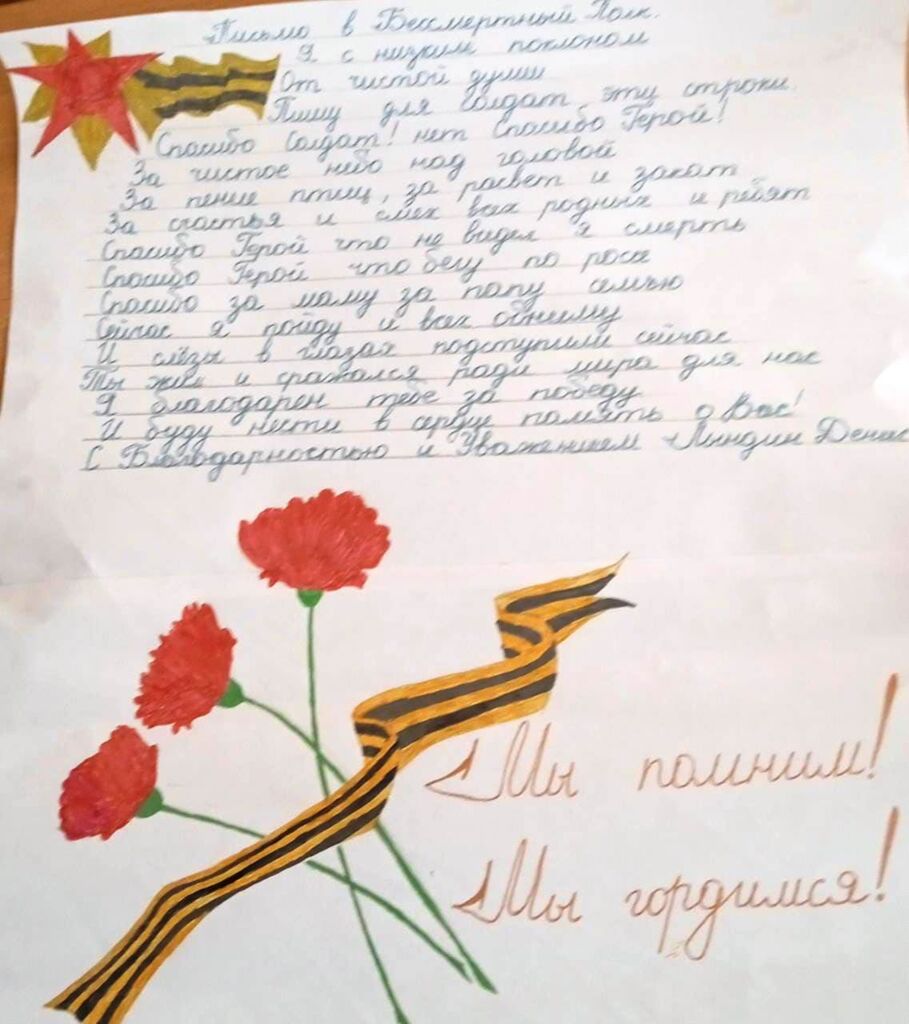 Письмо в Бессмертный Полк.
Я с низким поклоном
От чистой души
Пишу для солдат эти строки.
Спасибо Солдат! нет Спасибо Герой!
За чистое небо над головой
За пение птиц, за расвет и закат
За счастья и смех всех родных и ребят
Спасибо Герой что не видел я смерть
Спасибо Герой что бегу по роса
Спасибо за маму за папу семью
Сейчас я пойду и всех обниму
И слёзы в глазах подступили сейчас
Ты жил и сражался ради мира для нас
Я благодарен тебе за победу
И буду нести в сердце память о Вас!
С Благодарностью и Уважением Лындин Денис
Мы помним!
Мы гордимся!